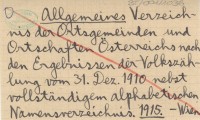 Allgemeines Verzeich-
nis der Ortsgemeinden und
Ortschaften Österreichs nach
den Ergebnissen der Volkszäh-
lung vom 31. Dez. 1910 nebst
vollständigem alphabetischen
Namensverzeichnis. 1915. – Wien